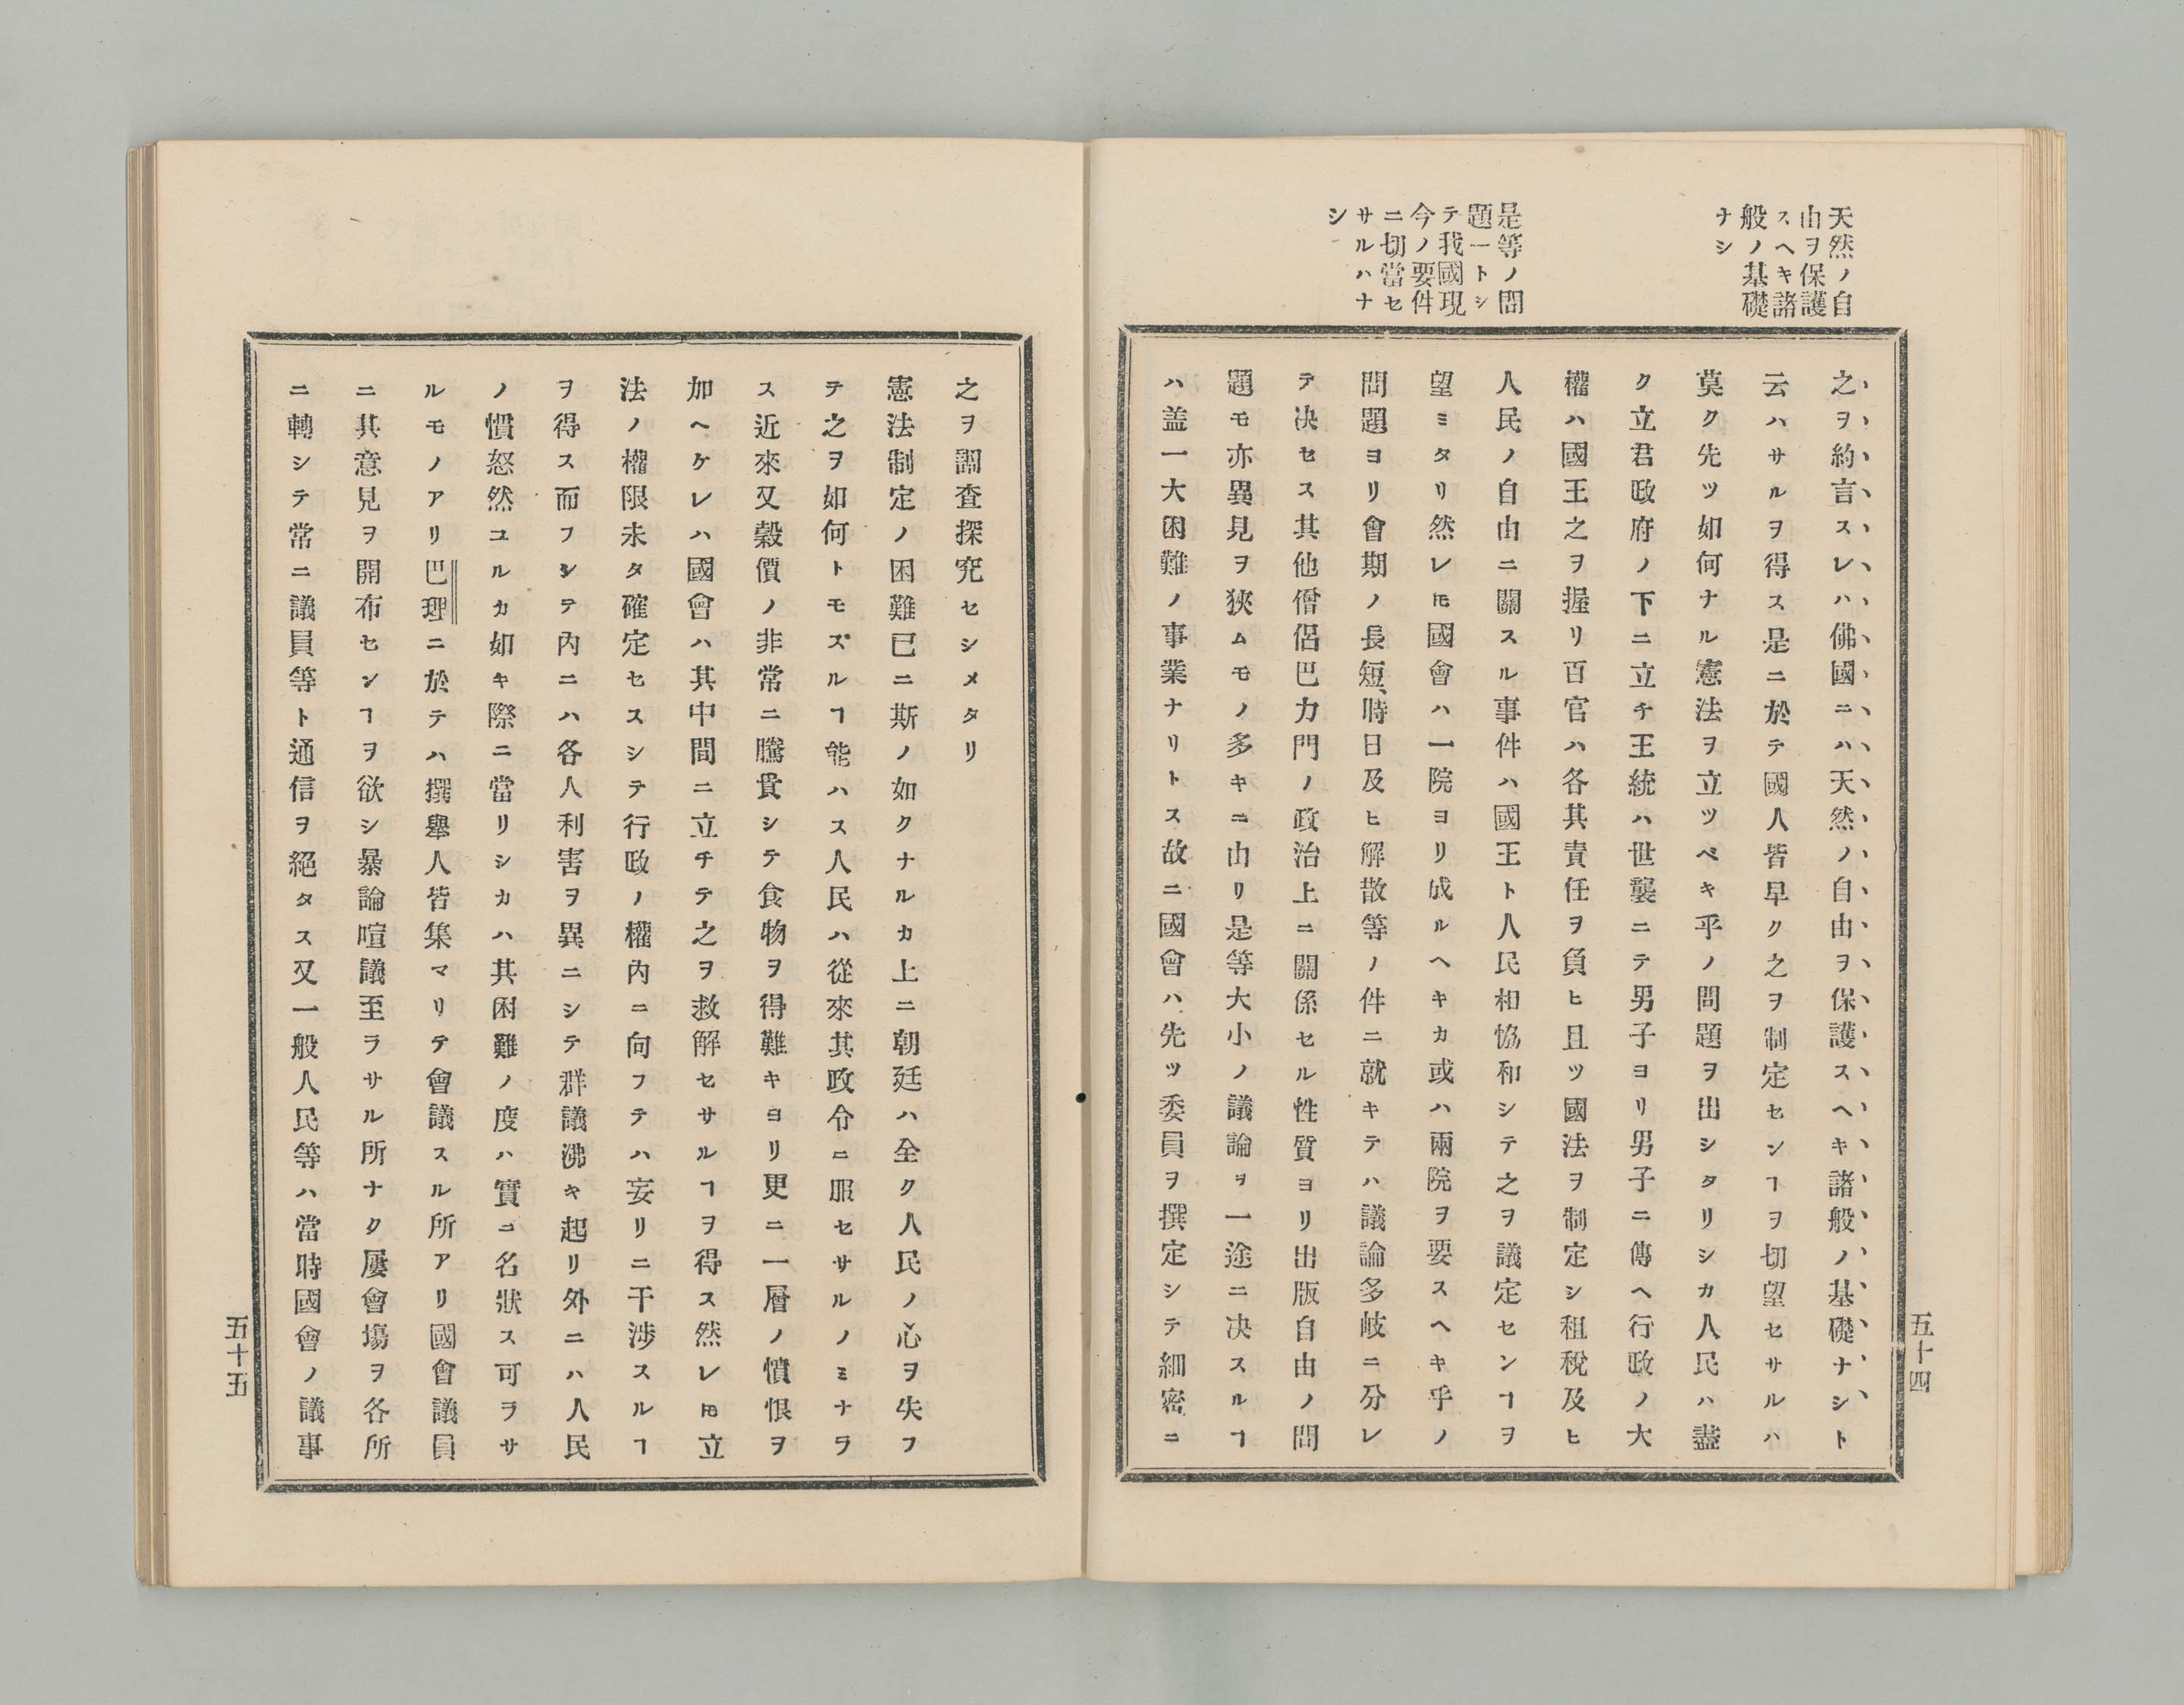 天然ノ自
由ヲ保護
スヘキ諸
般ノ基礎
ナシ
是等ノ問
題一トシ
テ我國現
今ノ要件
ニ切當セ
サルハナ
シ
之ヲ約言スレハ佛國ニハ天然ノ自由ヲ保護スヘキ諸般ノ基礎ナシト
云ハサルヲ得ス是ニ於テ國人皆早ク之ヲ制定センヿヲ切望セサルハ
莫ク先ツ如何ナル憲法ヲ立ツベキ乎ノ問題ヲ出シタリシカ人民ハ盡
ク立君政府ノ下ニ立チ王統ハ世襲ニテ男子ヨリ男子ニ傳ヘ行政ノ大
權ハ國王之ヲ握リ百官ハ各其責任ヲ負ヒ且ツ國法ヲ制定シ租稅及ヒ
人民ノ自由ニ關スル事件ハ國王ト人民相恊和シテ之ヲ議定センヿヲ
望ミタリ然レ𪜈國會ハ一院ヨリ成ルヘキカ或ハ兩院ヲ要スヘキ乎ノ
問題ヨリ會期ノ長短、時日及ヒ解散等ノ件ニ就キテハ議論多岐ニ分レ
テ决セス其他僧侶巴力門ノ政治上ニ關係セル性質ヨリ出版自由ノ問
題モ亦異見ヲ狹ムモノ多キニ由リ是等大小ノ議論ヲ一途ニ决スルヿ
ハ盖一大困難ノ事業ナリトス故ニ國會ハ先ツ委員ヲ撰定シテ細密ニ
五十四
之ヲ調査探究セシメタリ
憲法制定ノ困難已ニ斯ノ如クナルカ上ニ朝廷ハ全ク人民ノ心ヲ失フ
テ之ヲ如何トモスルヿ能ハス人民ハ從來其政令ニ服セサルノミナラ
ス近來又穀價ノ非常ニ騰貴シテ食物ヲ得難キヨリ更ニ一層ノ憤恨ヲ
加ヘケレハ國會ハ其中間ニ立チテ之ヲ救解セサルヿヲ得ス然レ𪜈立
法ノ權限未タ確定セスシテ行政ノ權內ニ向フテハ妄リニ干渉スルヿ
ヲ得ス而フシテ內ニハ各人利害ヲ異ニシテ群議沸キ起リ外ニハ人民
ノ憤怒然ユルカ如キ際ニ當リシカハ其困難ノ度ハ實ニ名狀ス可ラサ
ルモノアリ巴理ニ於テハ撰擧人皆集マリテ會議スル所アリ國會議員
ニ其意見ヲ開布センヿヲ欲シ暴論喧議至ラサル所ナク屢會塲ヲ各所
ニ轉シテ常ニ議員等ト通信ヲ絕タス又一般人民等ハ當時國會ノ議事
五十五